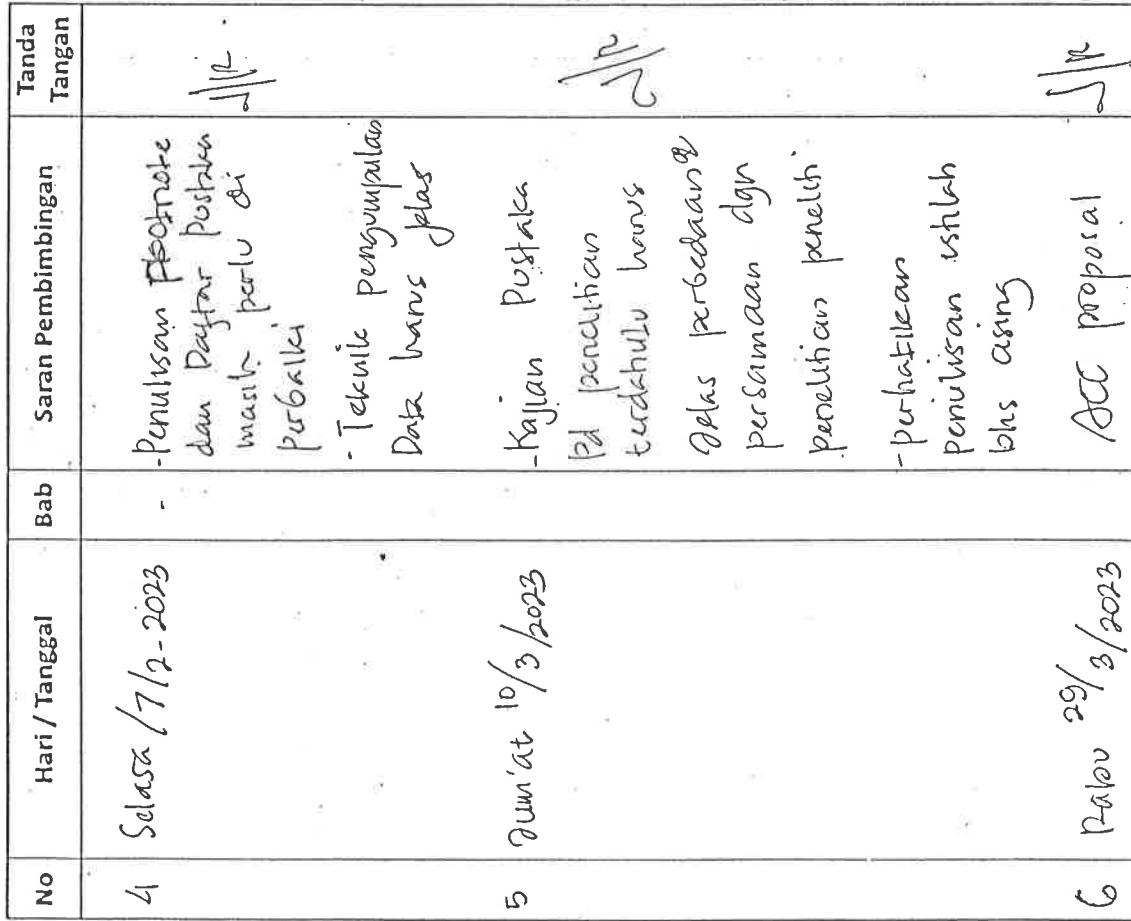 No Hari / Tanggal Bab Saran Pembimbingan Tanda Tangan
4 Selasa /7/2-2023 -
-Penulisan Footnote
dan Daftar Pustaka
masih perlu di
perbaiki
- Teknik pengumpulan
Data harus jelas
5 Jum'at 10/3/2023
-Kajian Pustaka
pd penelitian
terdahulu harus
Jelas perbedaan2
persamaan dgn
penelitian peneliti
-perhatikan
penulisan istilah
bhs asing
6 Rabu 29/3/2023 ACC proposal